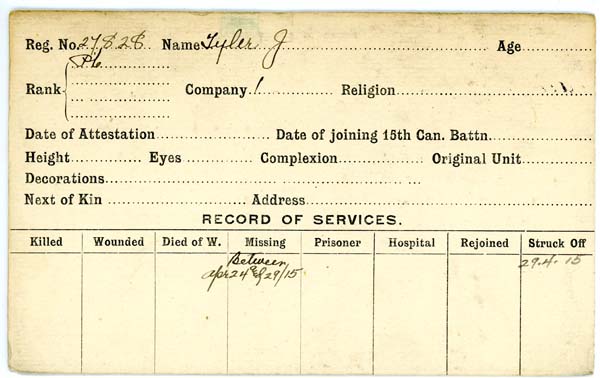 Reg. No. 27828 Name Tyler J Age
Pte
Rank Company 1 Religion
Date of Attestation Date of joining 15th Can. Battn.
Height Eyes Complexion Original Unit
Decorations
Next of Kin Address
RECORD OF SERVICES.
Killed Wounded Died of W. Missing Prisoner Hospital Rejoined Struck Off
Between 29.4.15
apr 24 & 29/15